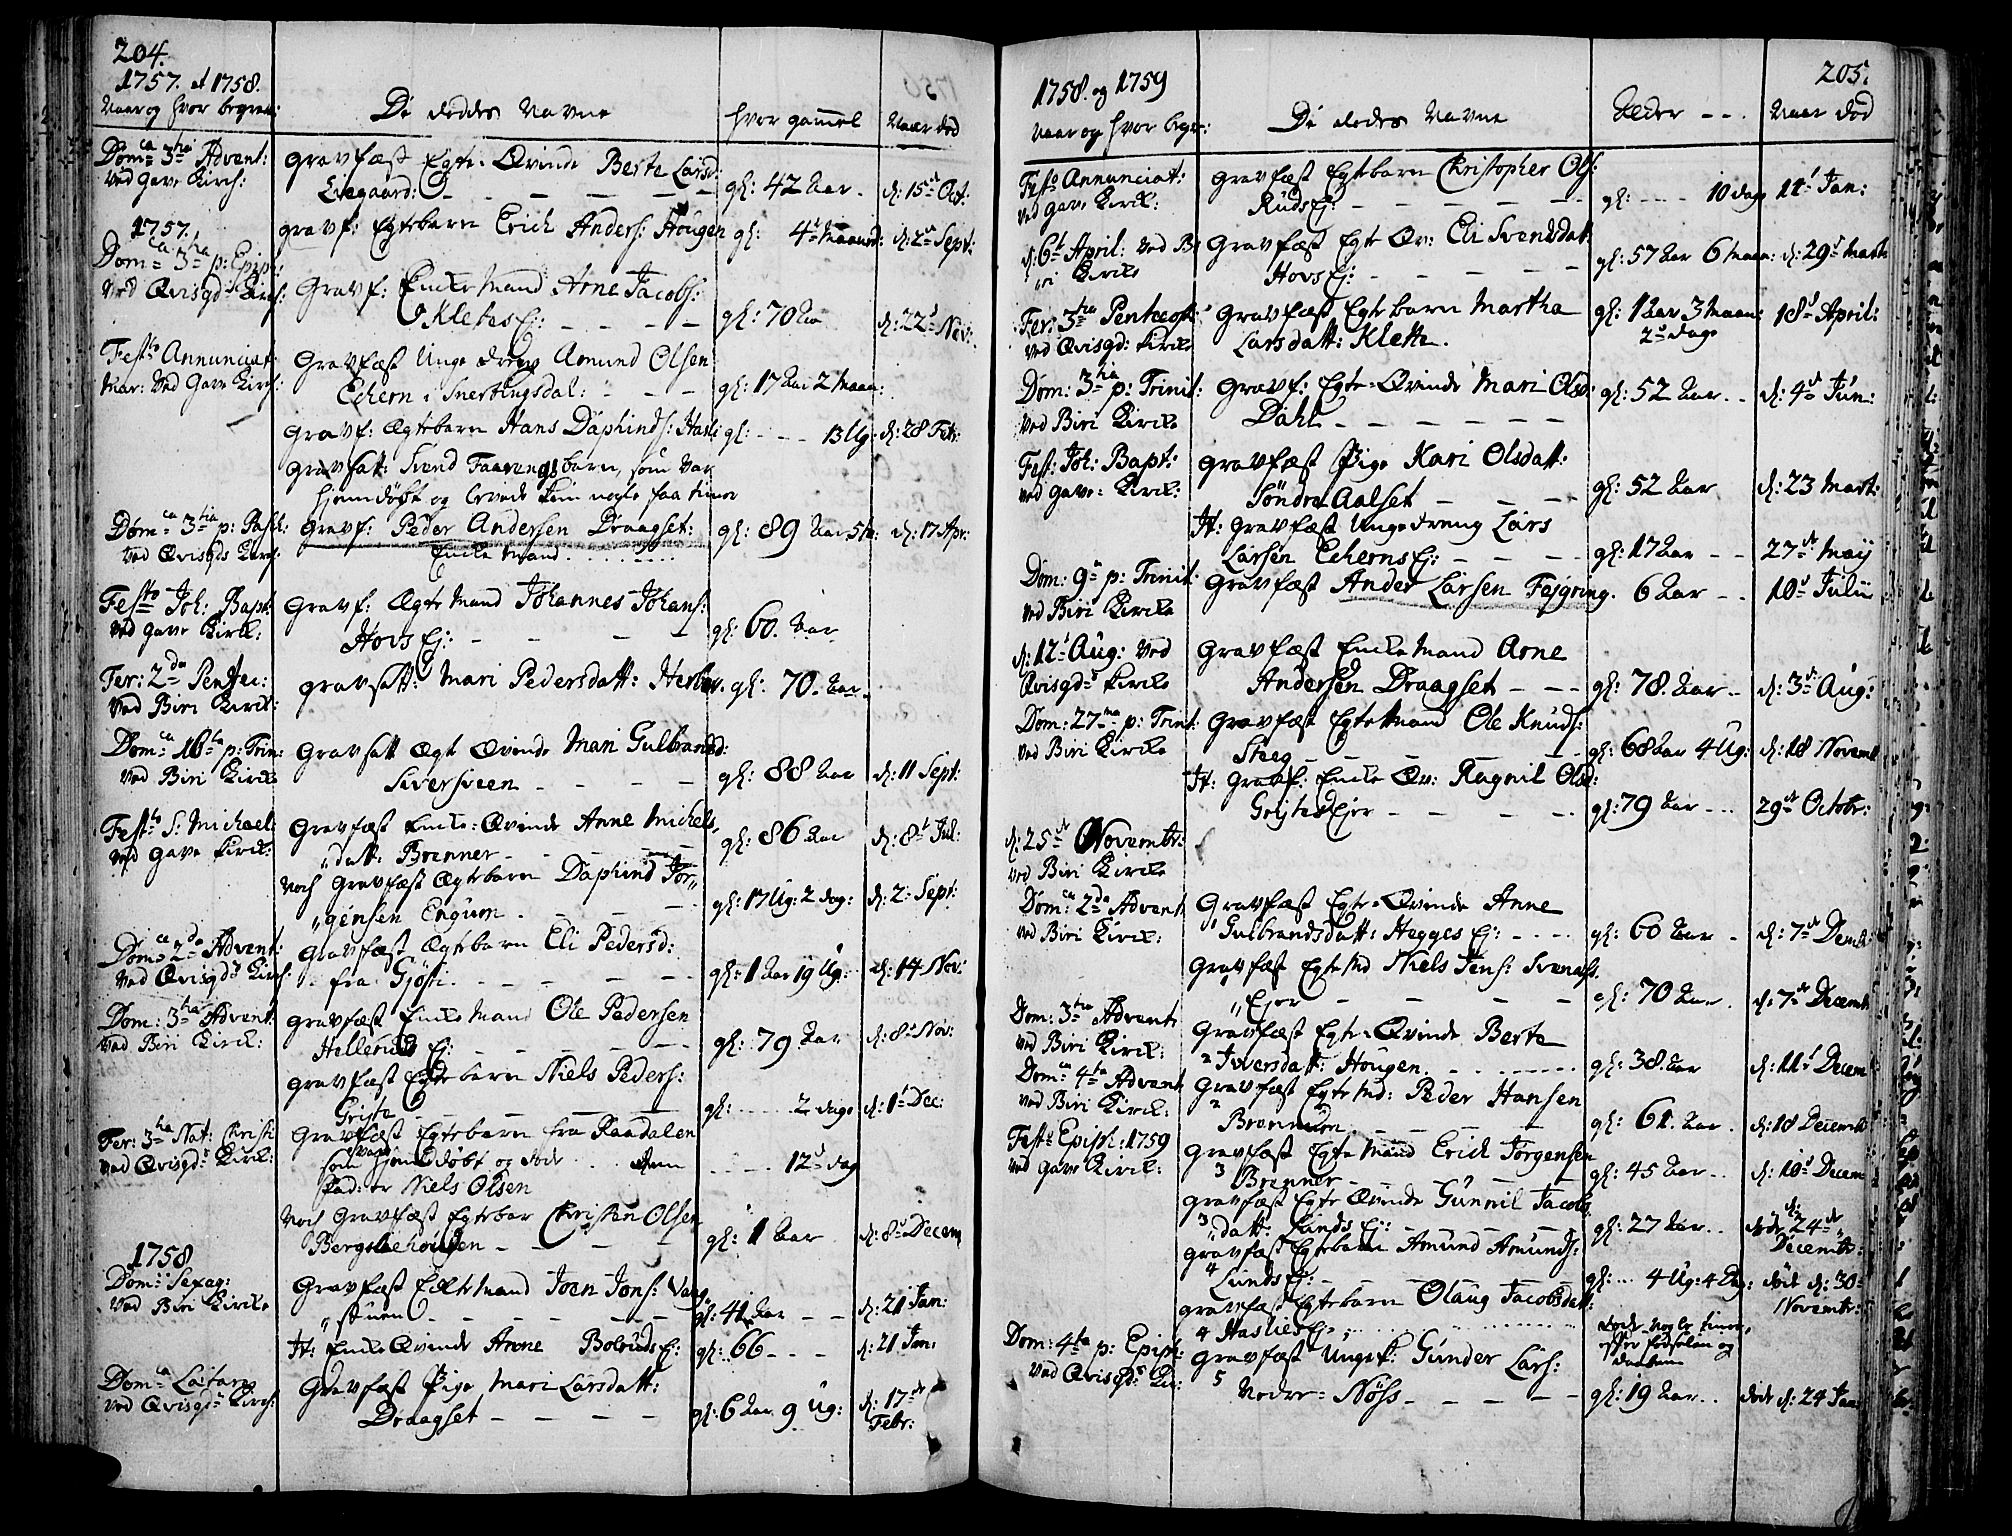 204.
1757. et 1758.
Naar og hvor begrav:
De dødes Navne
hvor gammel
Naar død
Dom: 3tia Advent:
ved Gave Kirch:
Gravfæst Egte-Qvinde Berte Larsd:
Liegaard:
gl: 42 Aar.
d: 15de Oct:
gravf: Egtebarn Erich Anders: Hougen
gl: 4 Maaned:
d: 2de Sept:
1757.
Dom: 3tia p: Epiph:
ved Qvisgds Kirch:
Gravf: Enke Mand Arne Jacobs:
Kletes Ej:
gl: 70 Aar
d: 22d Nov:
Festo Annunciat:
Mar: ved Gave Kirch:
Gravfæst Unge dreng Amund Olsen
Echern i Snertingsdal:
gl: 17 Aar 2 Maan:
Gravf: Ægtebarn Hans Daphinds: Hasli
gl: 13 Ug:
d: 28 Febr:
Gravsatt: Svend Faavengs barn, som var
hjemdøbt og levede kun nogle faa timer
Dom: 3tia p: Pasch:
ved Qvisgds Kirch:
Gravf: Peder Andersen Draagset:
Enke Mand.
gl: 89 Aar 5 M:
d: 17 Apr:
Festo Joh: Bapt:
ved Gave Kirch:
Gravf: Ægte Mand Johannes Johans:
Hovs Ej:
gl: 60. Aar
Fer: 2da Pentec:
ved Biri Kirch:
gravsatt: Mari Pedersdatt:
gl: 70. Aar.
Dom: 16ta p: Trin:
ved Biri Kirche
Gravsatt Ægte Qvinde Mari Gulbrandsd:
Siversveen
gl: 88 Aar
d: 11 Sept:
Festo S: Michael:
ved Gave Kirch:
Gravfæst Enke-Qvinde Anne Michels
„datt: Brenner
gl: 86 Aar
d: 8t Jul:
Noch Gravfæst Ægtebarn Daphind Jør„
„gensen Engum.
gl: 17 Ug: 2 dag:
d: 2: Sept:
Dom: 2da Advent:
ved Qvisgds Kirch:
Gravfæst Ægtebarn Eli Pedersd:
fra Gjøsti.
gl: 1 Aar 19 Ug:
d: 14 Nov:
Dom: 3tia Advent:
ved Biri Kirch:
Gravfæst Enke Mand Ole Pedersen
Hellerud Ej:
gl: 79 Aar
d: 8d Nov:
Gravfæst Egtebarn Niels Peders:
Griste
gl: 2 dage
d: 1t Dec:
Fer: 3tia Nat: Christi
ved Qvisgds Kirch:
Gravfæst Egtebarn fra Raadalen
som var hjemmedøbt og døde
Fad: er Niels Olsen
12 dag
Noch Gravfæst Egtebar Christen Olsen
Bergsliehougen
gl: 1 Aar
d: 8d Decem
1758
Dom: Sexag:
ved Biri Kirche
Gravfæst Egte Mand Joen Jons: Vang„
„stuen
gl: 41 Aar
d: 21 Jan:
It: Enke Qvinde Anne Bolruds Ej:
gl: 66
d: 21 Jan:
Dom: Lætare
ved Qvisgds Kirch:
Gravfæst Pige Mari Larsdatt:
Draagset
gl: 6 Aar 9 Ug:
d: 17de
Febr:
1758. og 1759
205.
Naar og hvor begr:
De dødes Navne
Alder
Naar død
Festo Annunciat:
ved Gave Kirch:
Gravfæst Egtebarn Christopher Ols:
Ruds Ej:
gl: 10 dage
11t Jan:
d: 6t April: ved Bi
„ri Kirche
Gravfæst Egte Qv: Eli Svendsdatt:
Hovs Ej:
gl: 57 Aar 6 Maan:
d: 29de Marti
Fer: 3tia Pentecost:
ved Qvisgd: Kirche
Gravfæst Egtebarn Martha
Larsdatt: Klette.
gl: 1 Aar 3 Maan:
2de dage
18d April:
Dom: 3tia p: Trinit:
ved Biri Kirche
Gravf: Egte-Qvinde Mari Olsd:
Dahl
gl: 52 Aar
d: 4de Jun:
Fest: Joh: Bapt:
ved Gave: Kirch:
Gravfæst Pige Kari Olsdatt:
Søndre Aalset
gl: 52 Aar
d: 23 Mart:
It: Gravfæst Unge dreng Lars
Larsen Echerns Ej:
gl: 17 Aar
27de Maij
Dom: 9a p: Trinit:
ved Biri Kirche
Gravfæst Ander Larsen Fejgring.
6 Aar
10d Julii
d: 12t Aug: ved
Qvisgds Kirche
Gravfæst Enke Mand Arne
Andersen Draagset
gl: 78. Aar
d: 3de Aug:
Dom: 27ma p: Trinit:
ved Biri Kirche
Gravfæst Egte Mand Ole Knuds:
Steeg
gl: 68 Aar 4 Ug:
d: 18 Novemb
It: Gravf: Enke Qv: Ragnil Olsd:
Ejer
gl: 79 Aar
29de Octobr:
d: 25de Novembr:
ved Biri Kirche
Dom: 2da Advent
ved Biri Kirch:
Gravfæst Egte-Qvinde Anne
Gulbrandsdatt: Hegges Ej:
gl: 60 Aar
d: 7de Decemb
Gravfæst Egte Md Niels Jens: Svenæs
„Ejer
gl: 70 Aar.
d: 7de Decemb
Dom: 3tia Advent
ved Biri Kirch:
Gravfæst Egte-Qvinde Berte
2 Iversdatt: Hougen.
gl: 38. Aar
d: 11t Decem
Dom: 4ta Advent
ved Biri Kirch:
Gravfæst Egte Md: Peder Hansen
2
gl: 61. Aar.
d: 18 Decemb
Festo Epiph: 1759
ved Gave Kirch:
Gravfæst Egte Mand Erich Jørgensen
3 Brenner
gl: 45 Aar
d: 10d Decem
gravfæst Egte Qvinde Gunnil Jacobs
3 „datt: Lunds Ej:
gl: 27 Aar
døde d: 24de
Decembr:
gravfæst Egtebarn Amund Amunds:
4 Lunds Ej:
gl: 4 Ug: 4 Dag:
død d: 30
Novembr:
gravfæst Egtebarn Olaug Jacobsdatt:
4 Haslies Ej:
døde nogle timer
efter fødselen og
daaben
Dom: 4ta p: Epiph:
ved Qvisgds Kir:
Gravfæst Ungek: Gunder Lars:
5 Nedre-Nøss
gl: 19 Aar
død d: 24 Jan: